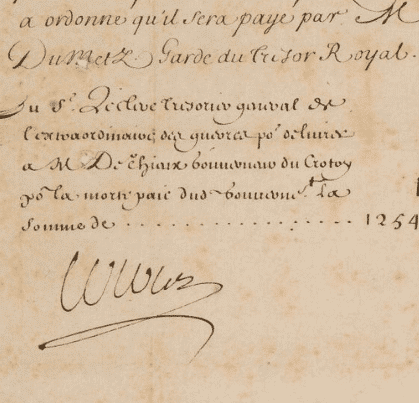 a ordonne qu'il sera payé par M
Du Metz Garde du Tresor Royal.
Au Sr. De Clive Tresorier general de
l'extraordinaire des guerres po. delivrer
a M De Gouverneur du Crotoy
po. la morte paie dud Gouvernet. La
somme de . . . . . . . . . . . . . . . . . . 1254